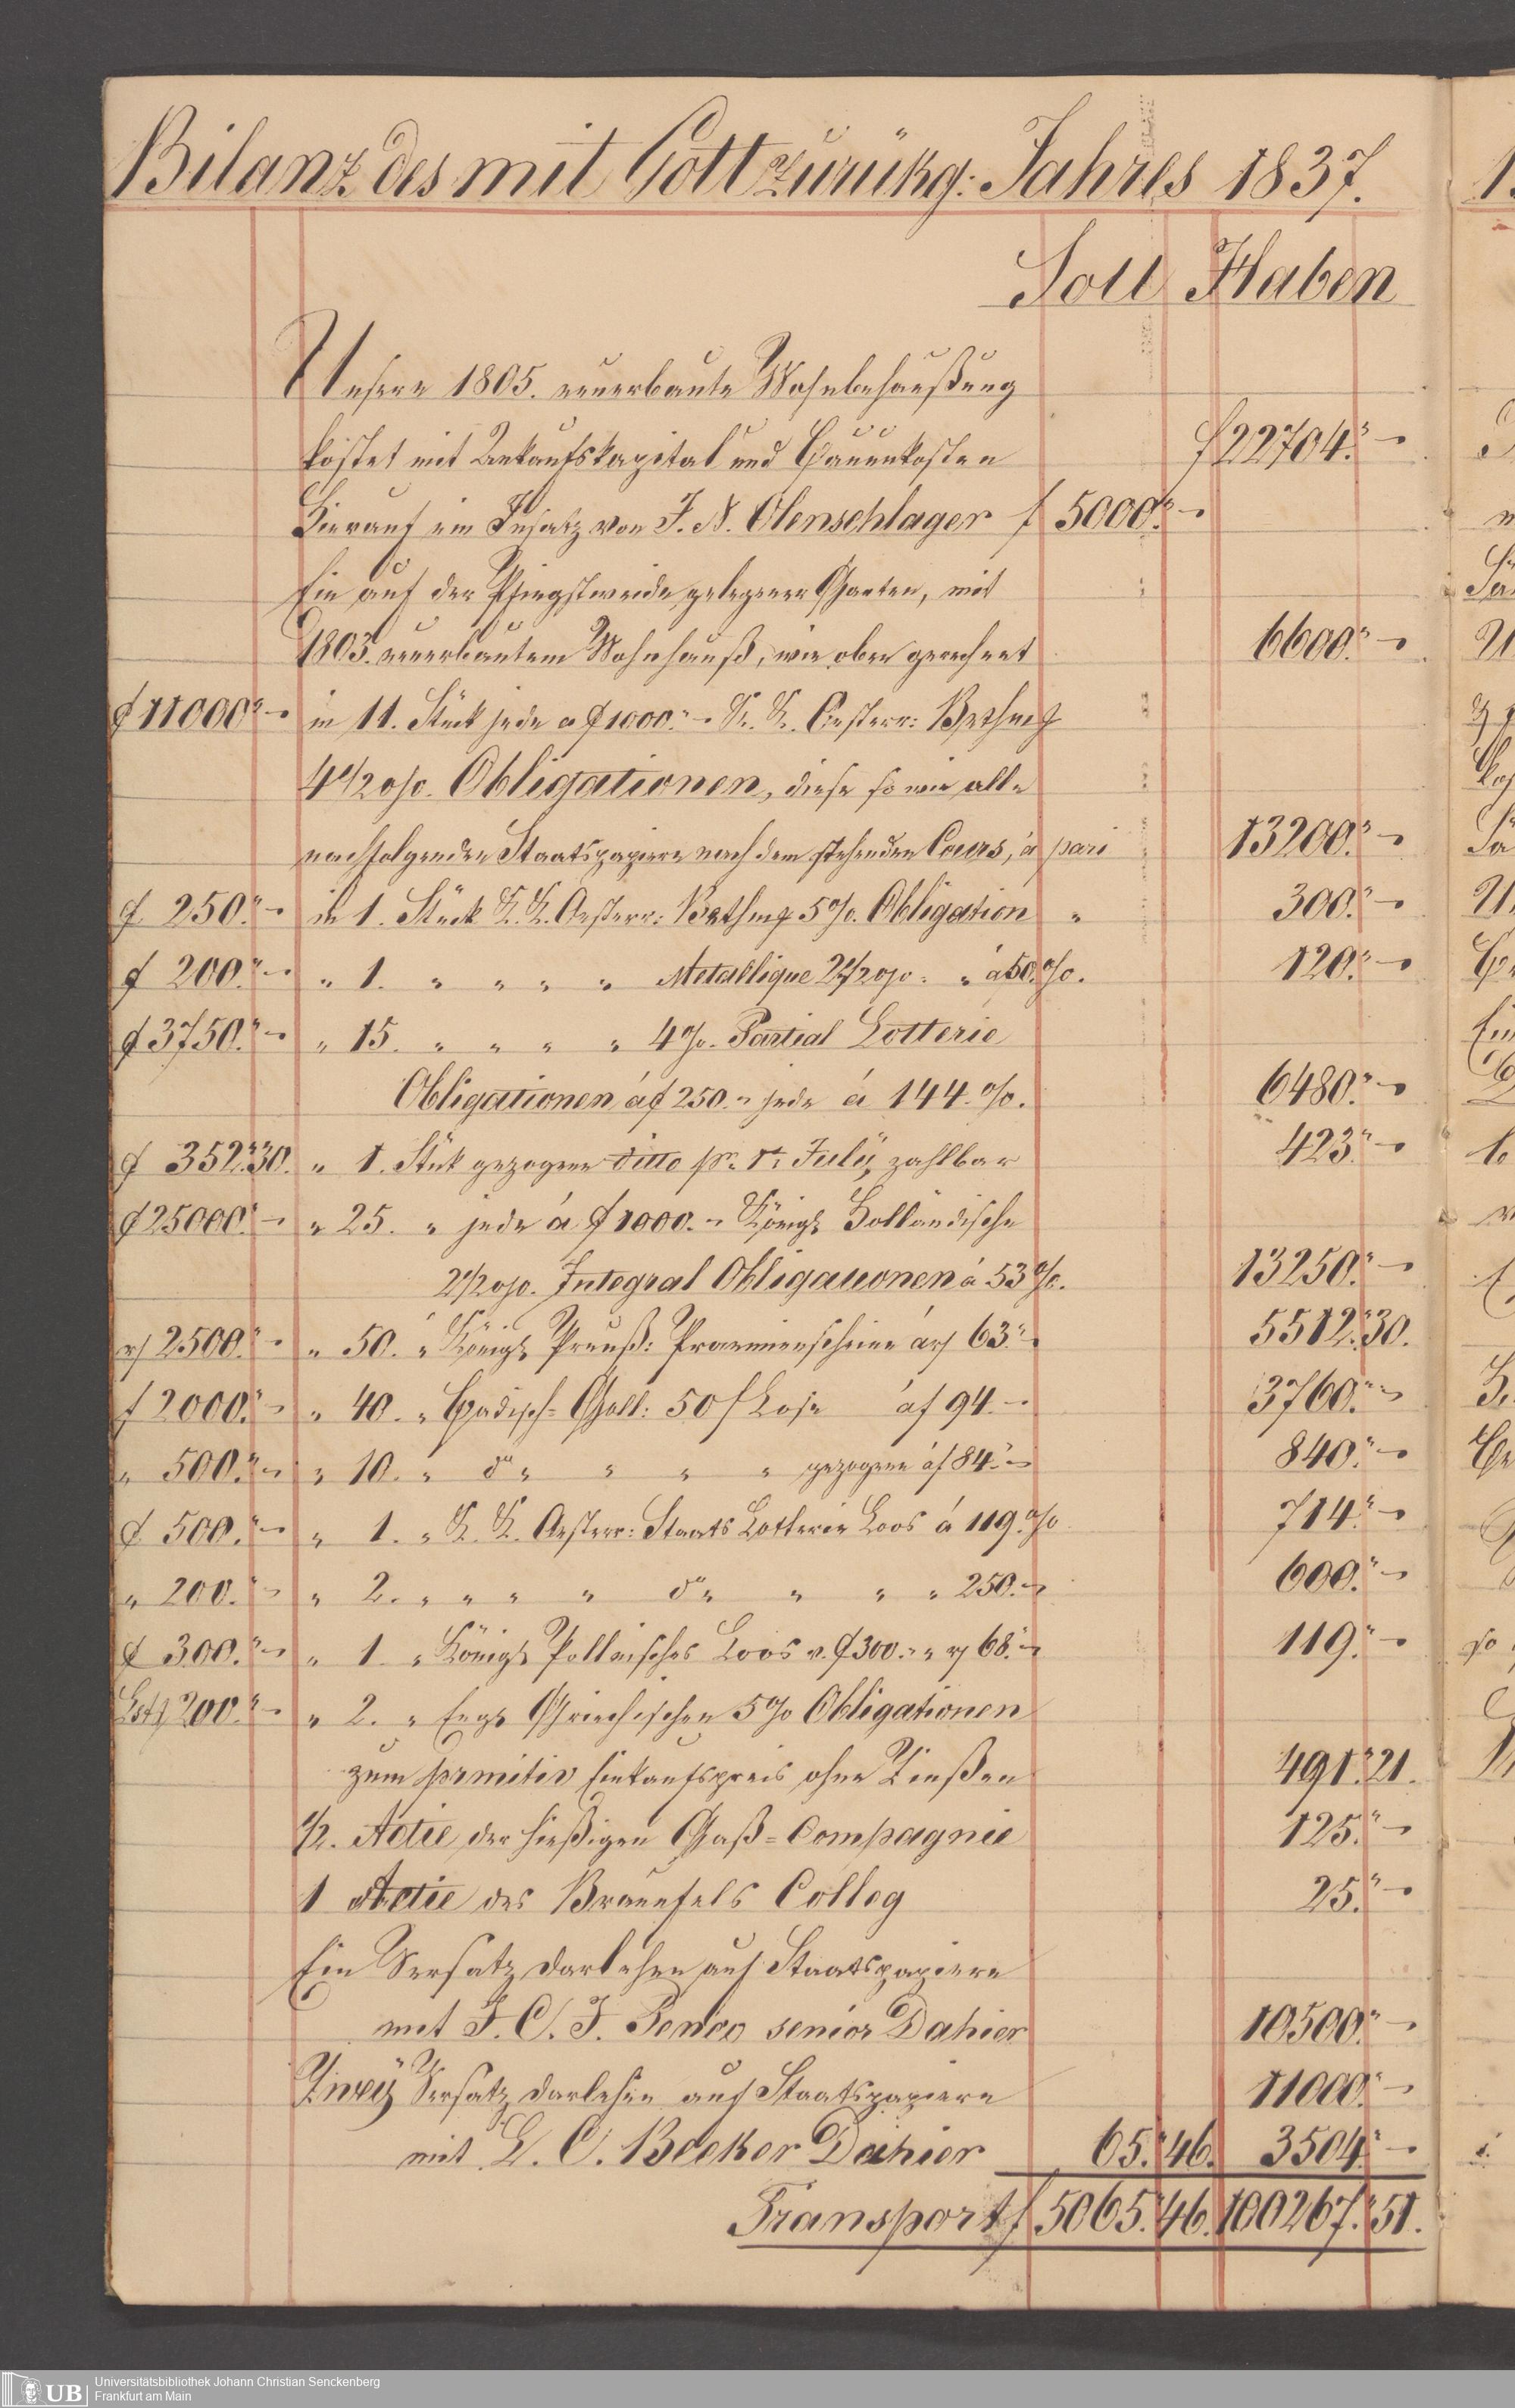 Bilanz des mit Gott zurükg: Jahres 1837.
Soll Haben
Unsere 1805. neuerbaute Wohnbehaußung
kostet mit Ankaufskapital und Bauunkosten f 22704." -
Hierauf ein Insatz von J. N. Olenschlager f 5000." -
Ein auf der Pfingstweide gelegener Garten, mit
1803. neuerbautem Wohnhauß, wie oben gerechnet 6600." -
f 11000." - in 11. Stück jede a f 1000." - K. K. Oesterr: Bethm
4 1/2 o/o. Obligationen, diese so wie alle
nachfolgenden Staatspapiere nach dem stehenden Cours, á pari 13200." -
f 250." - in 1. Stück K. K. Oesterr: Bethm 5 o/o. Obligation " 300." -
f 200." - " 1. " " " " Metallique 2 1/2 o/o. " á 50. o/o. 120." -
f 3750." - " 15. " " " " 4 o/o. Partial Lotterie
Obligationen á f 250. " jede á 144. o/o. 6480." -
f 352." 30. " 1. Stük gezogene ditto pr. 1t. July, zahlbar 423." -
f 25000." - " 25. " jede á f 1000. " Königl Holländische
2 1/2 o/o. Integral Obligationen á 53 o/o. 13250." -
r 2500." - " 50. " Königl Preuß: Praemienscheine á r 63." - 5512." 30.
f 2000." - " 40. " Badisch-Goll: 50 f Lose á f 94. - 3760." -
" 500." - " 10. " do " " " " gezogene á f 84." - 840." -
f 500." - " 1. " K. K. Oesterr: Staats Lotterie Loos á 119. o/o 714." -
" 200." - " 2. " " " " do " " " " 250. - 600." -
f 300." - " 1. " Königl Pollnisches Loos v. f 300. " " r 68." - 119." -
Lst 200." - " 2. " Engl Griechischen 5 o/o Obligationen
zum prmitiv Einkaufspreis ohne Zinßen 491." 21.
1/2. Actie der hießigen Gaß-Compagnie 125." -
1 Actie des Braunfels Colleg 25." -
Ein Versatz darlehen auf Staatspapiere
mit J. C. J. senior Dahier 10500." -
Zwey Versatz darlehen auf Staatspapiere 11000." -
mit L. C. Becker Dahier 65." 46. 3504." -
Transport f 5065." 46. 100267." 51.
UB Universitätsbibliothek Johann Christian Senckenberg
Frankfurt am Main